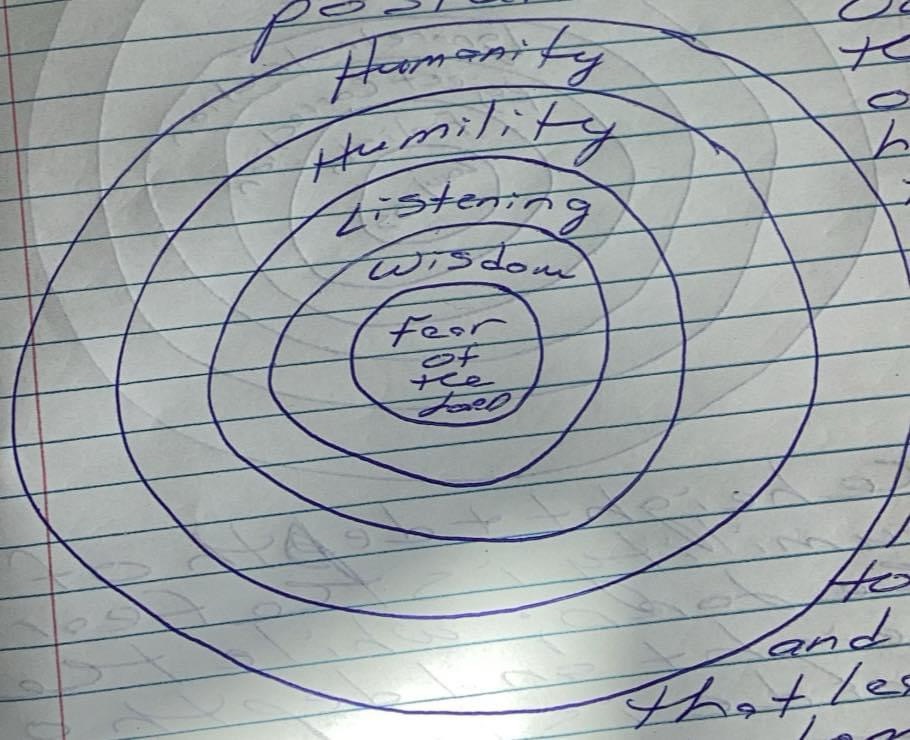 Humanity
Humility
Listening
Wisdom
Fear
of
the
LORD
to
and
that les